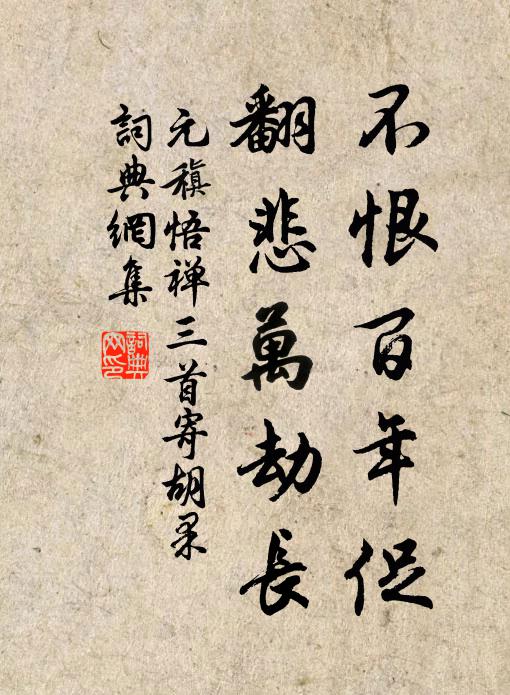 不恨百年促
翻悲萬劫長
元稹悟禅三首寄胡杲
詞典網集
詞典网印